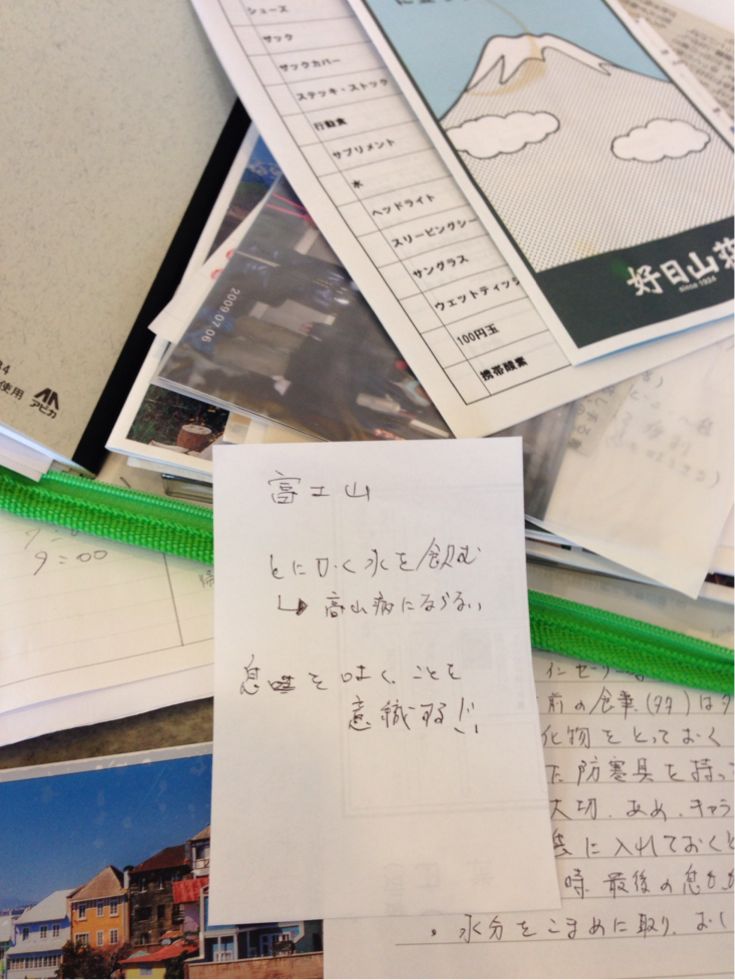 シューズ
ザック
ザックカバー
ステッキ・ストック
行動食
サプリメント
水
ヘッドライト
スリーピングシー
サングラス
ウェットティッシ
100円玉
携帯酸素
好日山荘
since 1924
2009.07.06
使用
アピカ
9:00
富士山
とにかく水を飲む
↳ 高山病にならない
息を吐くことを
意識する!!
前の食事(夕)は
化物をとっておく
た防寒具を持っ
大切、あめ、キャラ
に入れておくと
時、最後の息
・水分をこまめに取り、